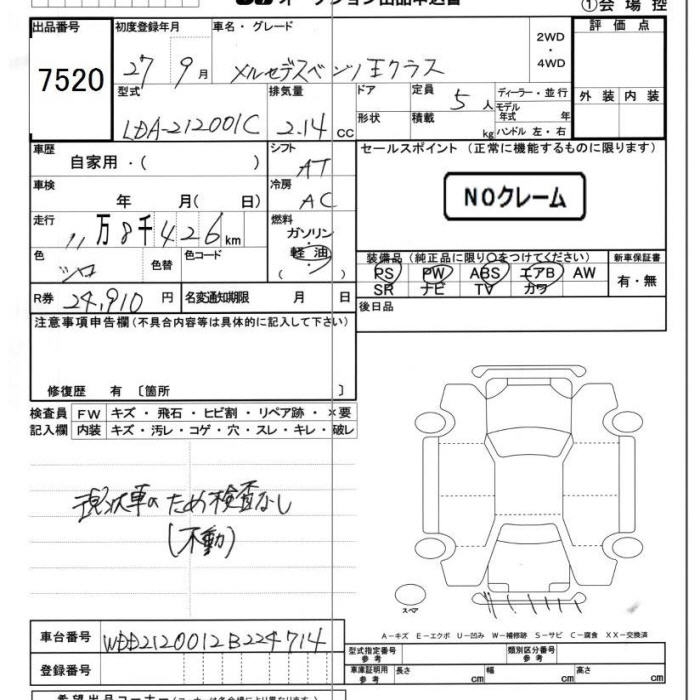 オークション出品申込書
①会場控
出品番号
7520
初度登録年月
27 9月
車名・グレード
メルセデスベンツEクラス
2WD
・
4WD
評価点
外装 内装
型式
LDA-212001C
排気量
2.14 CC
ドア
形状
定員
5人
積載
kg
ディーラー・並行
モデル年式 年
ハンドル 左・右
車歴
自家用・( )
シフト
AT
車検
年 月( 日)
冷房
AC
走行
11万8千426km
燃料
ガソリン
・
軽油
( )
色
シロ
色替
色コード
R券 24,910 円
名変通知期限 月 日
セールスポイント (正常に機能するものに限ります)
NOクレーム
装備品 (純正品に限り○をつけてください)
PS PW ABS エアB AW
SR ナビ TV カワ
新車保証書
有・無
後日品
注意事項申告欄(不具合内容等は具体的に記入して下さい)
修復歴 有 〔箇所 〕
検査員 FW キズ・飛石・ヒビ割・リペア跡・×要
記入欄 内装 キズ・汚レ・コゲ・穴・スレ・キレ・破レ
現状車のため検査なし
(不動)
スペア
A−キズ E−エクボ U−凹み W−補修跡 S−サビ C−腐食 XX−交換済
車台番号 WDD2120012B224714
登録番号
型式指定番号
参考
類別区分番号
参考
車庫証明用
参考
長さ cm
幅 cm
高さ cm
希望出品コーナー